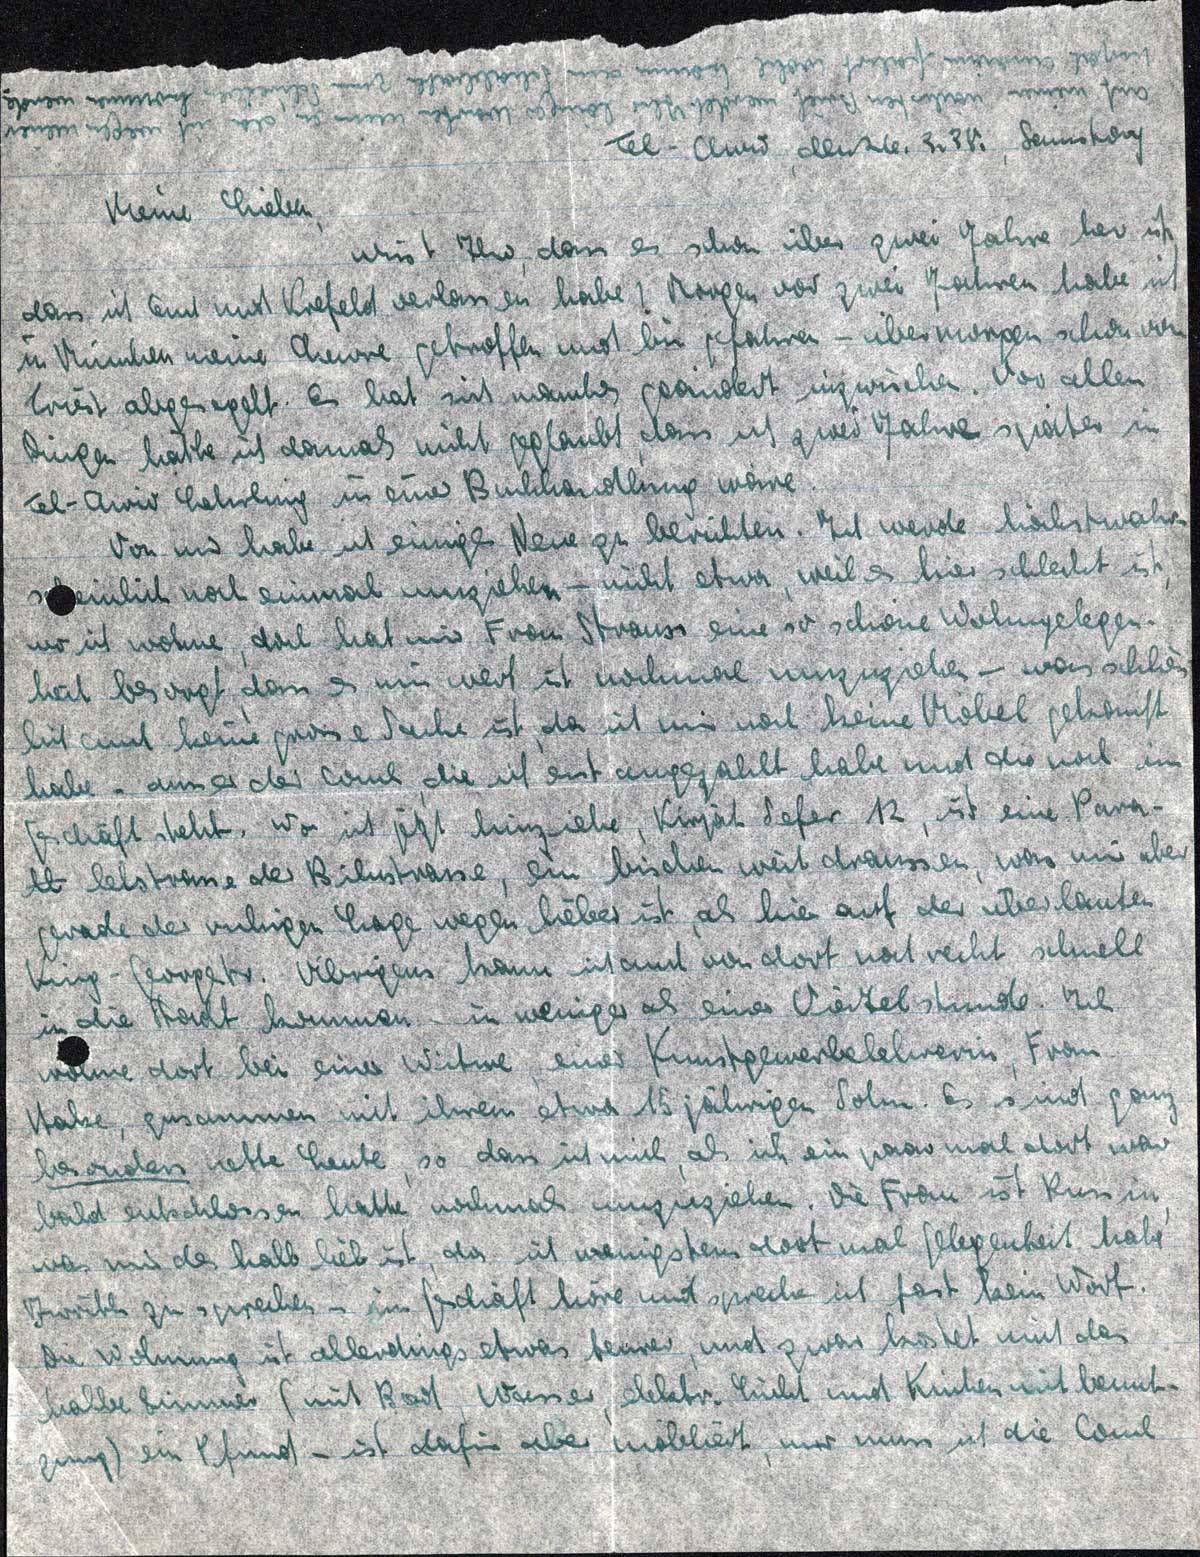 Tel-Awiw, den 26. 3. 38., Samstag
Meine Lieben,
wisst Ihr, dass es schon über zwei Jahre her ist,
dass ich Euch und Krefeld verlassen habe? Morgen vor zwei Jahren habe ich
in München meine Chewre getroffen und bin gefahren – übermorgen schon von
Triest abgesegelt. Es hat sich manches geändert inzwischen. Vor allen
Dingen hätte ich damals nicht geglaubt, dass ich zwei Jahre später in
Tel-Awiw Lehrling in einer Buchhandlung wäre.
Von mir habe ich einiges Neue zu berichten. Ich werde höchstwahr-
scheinlich noch einmal umziehen – nicht etwa, weil es hier schlecht ist,
wo ich wohne, doch hat mir Frau Strauss eine so schöne Wohngelegen-
heit besorgt, dass es mir wert ist nochmal umzuziehen – was schliess
lich auch keine grosse Sache ist, da ich mir noch keine Möbel gekauft
habe – ausser der Couch, die ich erst angezahlt habe und die noch im
Geschäft steht. Wo ich jetzt hinziehe, Kirjath Sefer 12, ist eine Para-
lelstrasse der Bilustrasse, ein bischen weit draussen, was mir aber
gerade der ruhigen Lage wegen lieber ist, als hier auf der überlauten
King-Georgestr. Übrigens kann ich auch von dort noch recht schnell
in die Stadt kommen – in weniger als einer Viertelstunde. Ich
wohne dort bei einer Witwe, einer Kunstgewerbelehrerin, Frau
zusammen mit ihrem etwa 15 jährigen Sohn. Es sind ganz
besonders nette Leute, so dass ich mich, als ich ein paar mal dort war
bald entschlossen hatte nochmals umzuziehen. Die Frau ist Russin,
was mir deshalb lieb ist, da ich wenigstens dort mal Gelegenheit habe,
Iwrith zu sprechen – im Geschäft höre und spreche ich fast kein Wort.
Die Wohnung ist allerdings etwas teurer, und zwar kostet mich das
halbe Zimmer (mit Bad, Wasser, elektr. Licht und Küchenmitbenut-
zung) ein Pfund – ist dafür aber möbliert, nur muss ich die Couch